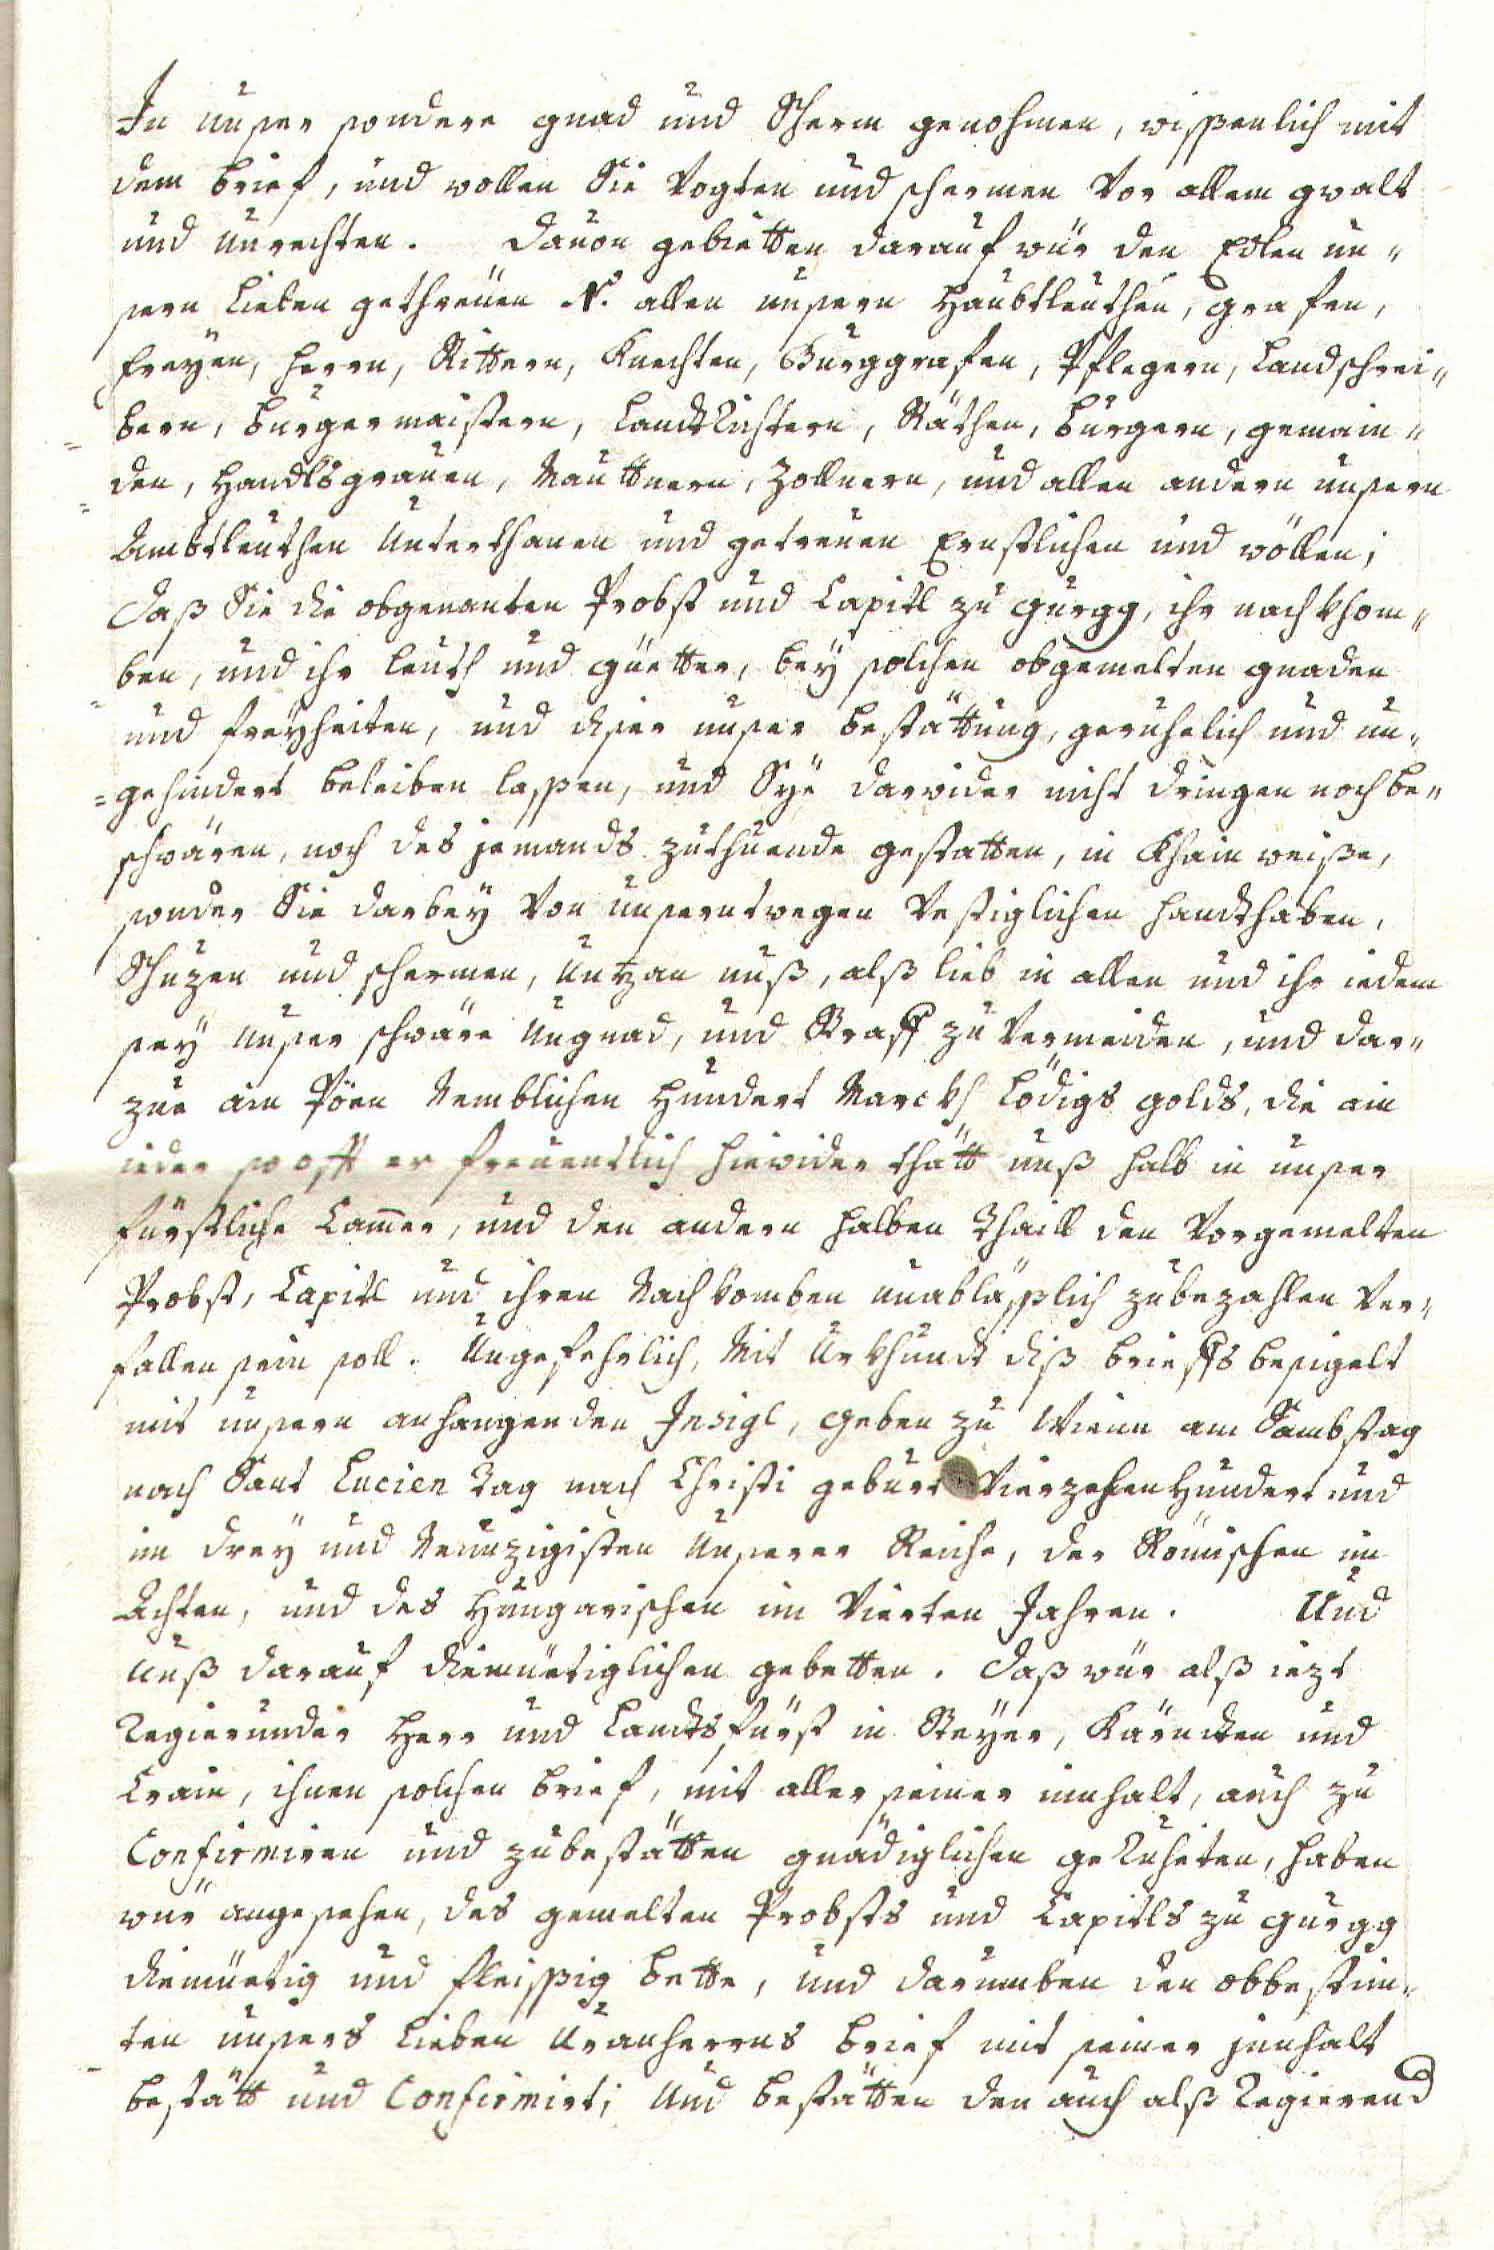 In unser sondere gnad und Scherm genohmen, wissenlich mit
dem brief, und wollen Sie Vogten und schermen Vor allem gwalt
und unrechten. Dauon gebietten darauf wür den Edlen un„
sern Lieben gethreuen N. allen unsern Haubtleuthen, grafen,
freyen, herrn, Rittern, Knechten, Burggrafen, Pflegern, Landschrei„
bern, burgermaistern, Landtrichtern, Räthen, burgern, gemain„
den, Handlsgrauen, Mauttnern, Zollnern, und allen andern unsern
Ambtleuthen Unterthanen und getreuen Ernstlichen und wöllen;
daß Sie die obgenanten Probst und Capitl zu gurgg, ihr nachkhom„
ben, und ihr leuth und güetter, bey solchen obgemelten gnaden
und freyheiten, und diser unser bestättung, geruhelich und un„
=gehindert beleiben lassen, und Sye darwider nicht dringen noch be„
schwären, noch des jemands zuthuende gestatten, in Khain weiße,
sonder Sie darbey Von unserntwegen Vestiglichen handthaben,
Schuzen und schermen, Untzan unß, alß lieb in allen und ihr iedem
sey Unser schwäre Ungnad, und Straff zu Vermeiden, und dar„
zue ain Pöen Nemblichen Hundert Marckh Lödigs golds, die ain
ieder so offt er freuentlich hiewider thätt unß halb in unser
fürstliche Camer, und den andern halben Thaill den Vorgemelten
Probst, Capitl und ihren Nachkomben unabläßlich zubezahlen Ver„
fallen sein soll. Ungefehrlich, Mit Urkhundt diß brieffs besigelt
mit unsern anhangenden Insigl, geben zu Wienn am Sambstag
nach Sant Lucien Tag nach Christi geburt Vierzehen Hundert und
im drey und Neunzigisten Unserer Reiche, des Römischen im
Achten, und des Hungarischen im Vierten Jahren. Und
Unß darauf diemüetiglichen gebetten. daß wür alß iezt
Regierunder Herr und Landtsfürst in Steyer, Kärndten und
Crain, ihnen solchen brief, mit aller seiner innhalt, auch zu
Confirmiren und zubestätten gnädiglichen geruheten, haben
wür angesehen, des gemelten Probsts und Capitls zu gurgg
diemüetig und fleissig bette, und darumben den obbestim„
ten unsers Lieben Uranherrns brief mit seiner jnnhalt
bestätt und Confirmirt; Und bestätten den auch alß Regierend